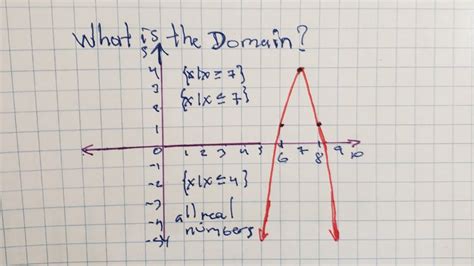 What is the Domain?
5
4
{x|x ≥ 7}
3
{x|x ≤ 7}
2
1
0 1 2 3 4 5 6 7 8 9 10
-1
-2
{x|x ≤ 4}
-3
all real
-4
numbers
-5